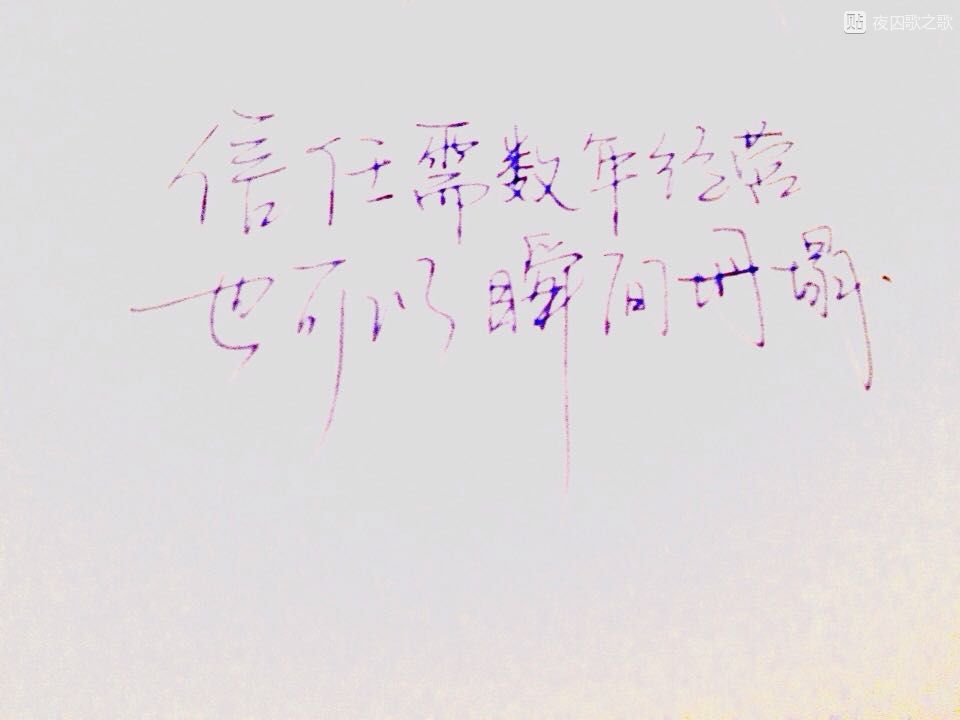 贴 夜囚歌之歌
信任需数年经营
也可以瞬间坍塌.